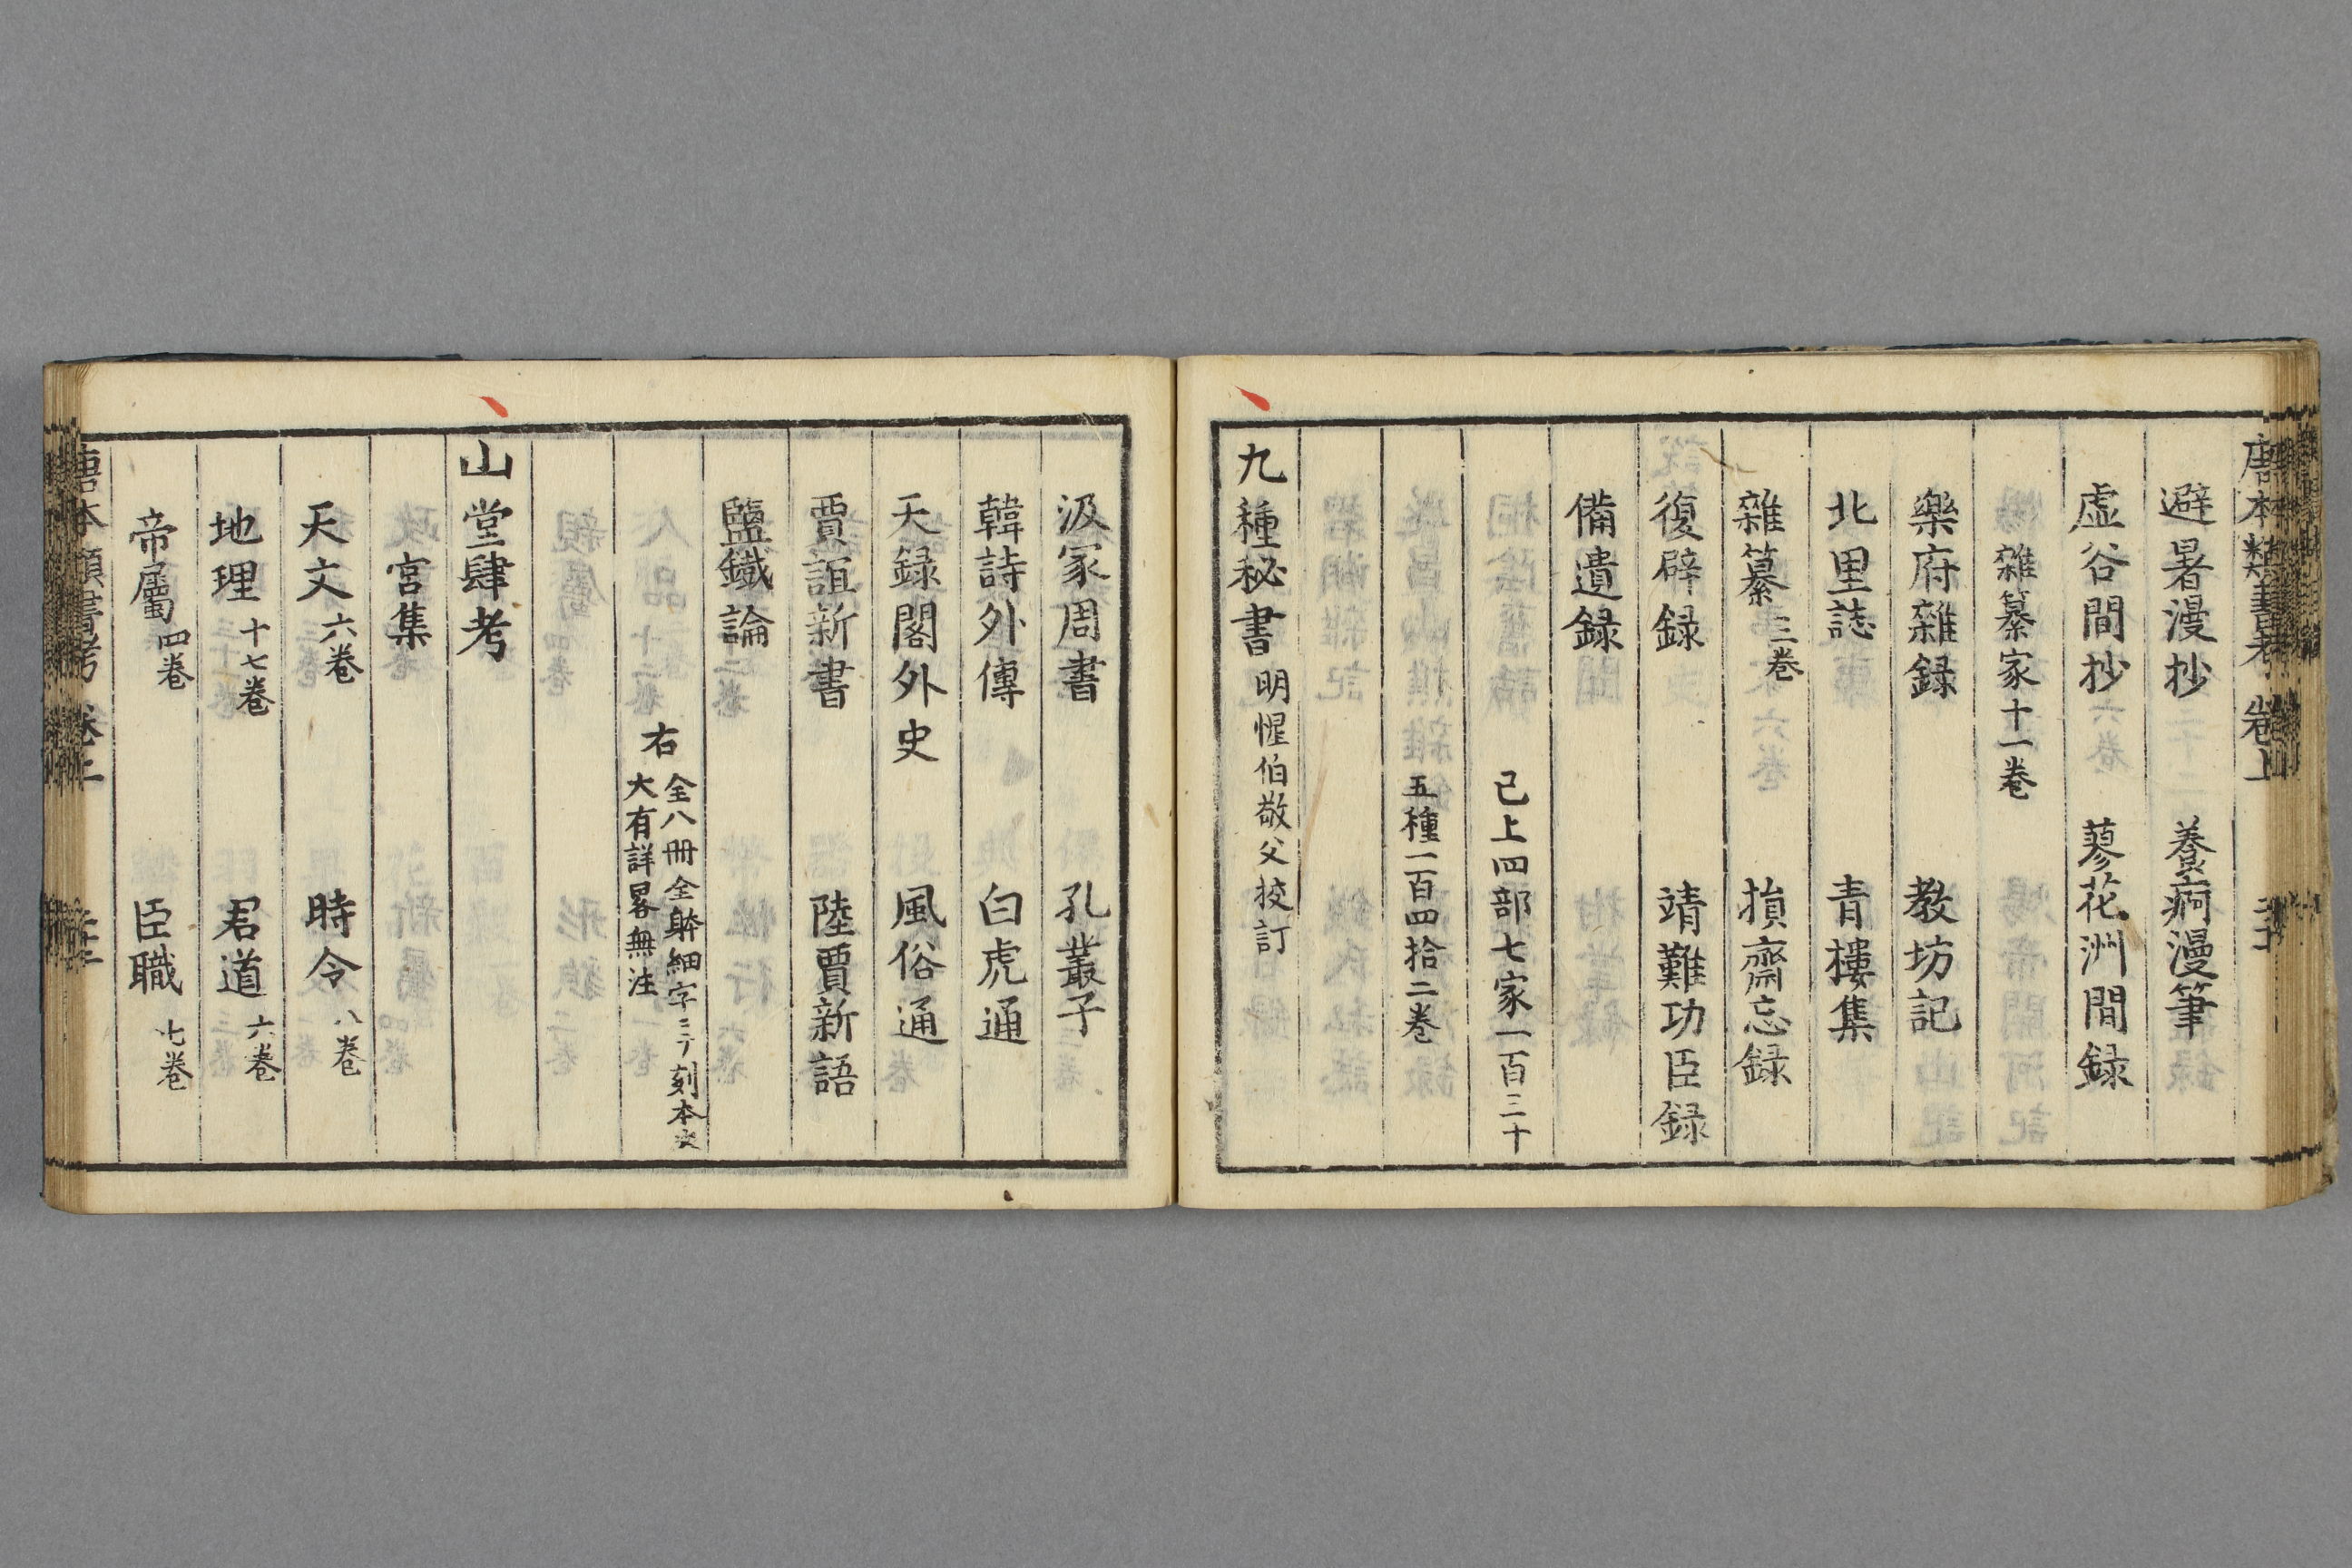 避暑漫抄　養痾漫筆
虚谷間抄　蓼花洲間録
雜纂家十一卷
樂府雜録　教坊記
北里誌　青樓集
雜纂三卷　損齋忘録
復辟録　靖難功臣録
備遺録
己上四部七家一百三十
五種一百四拾二卷
九種秘書　明惺伯敬父挍訂
汲冢周書　孔叢子
韓詩外傳　白虎通
天録閣外史　風俗通
賈誼新書　陸賈新語
鹽鐵論
右　全八冊全躰細字ニテ刻本
大有詳畧無注
山堂肆考
宮集
天文六卷　時令八卷
地理十七卷　君道六卷
帝屬四卷　臣職七卷
唐本類書考　卷上